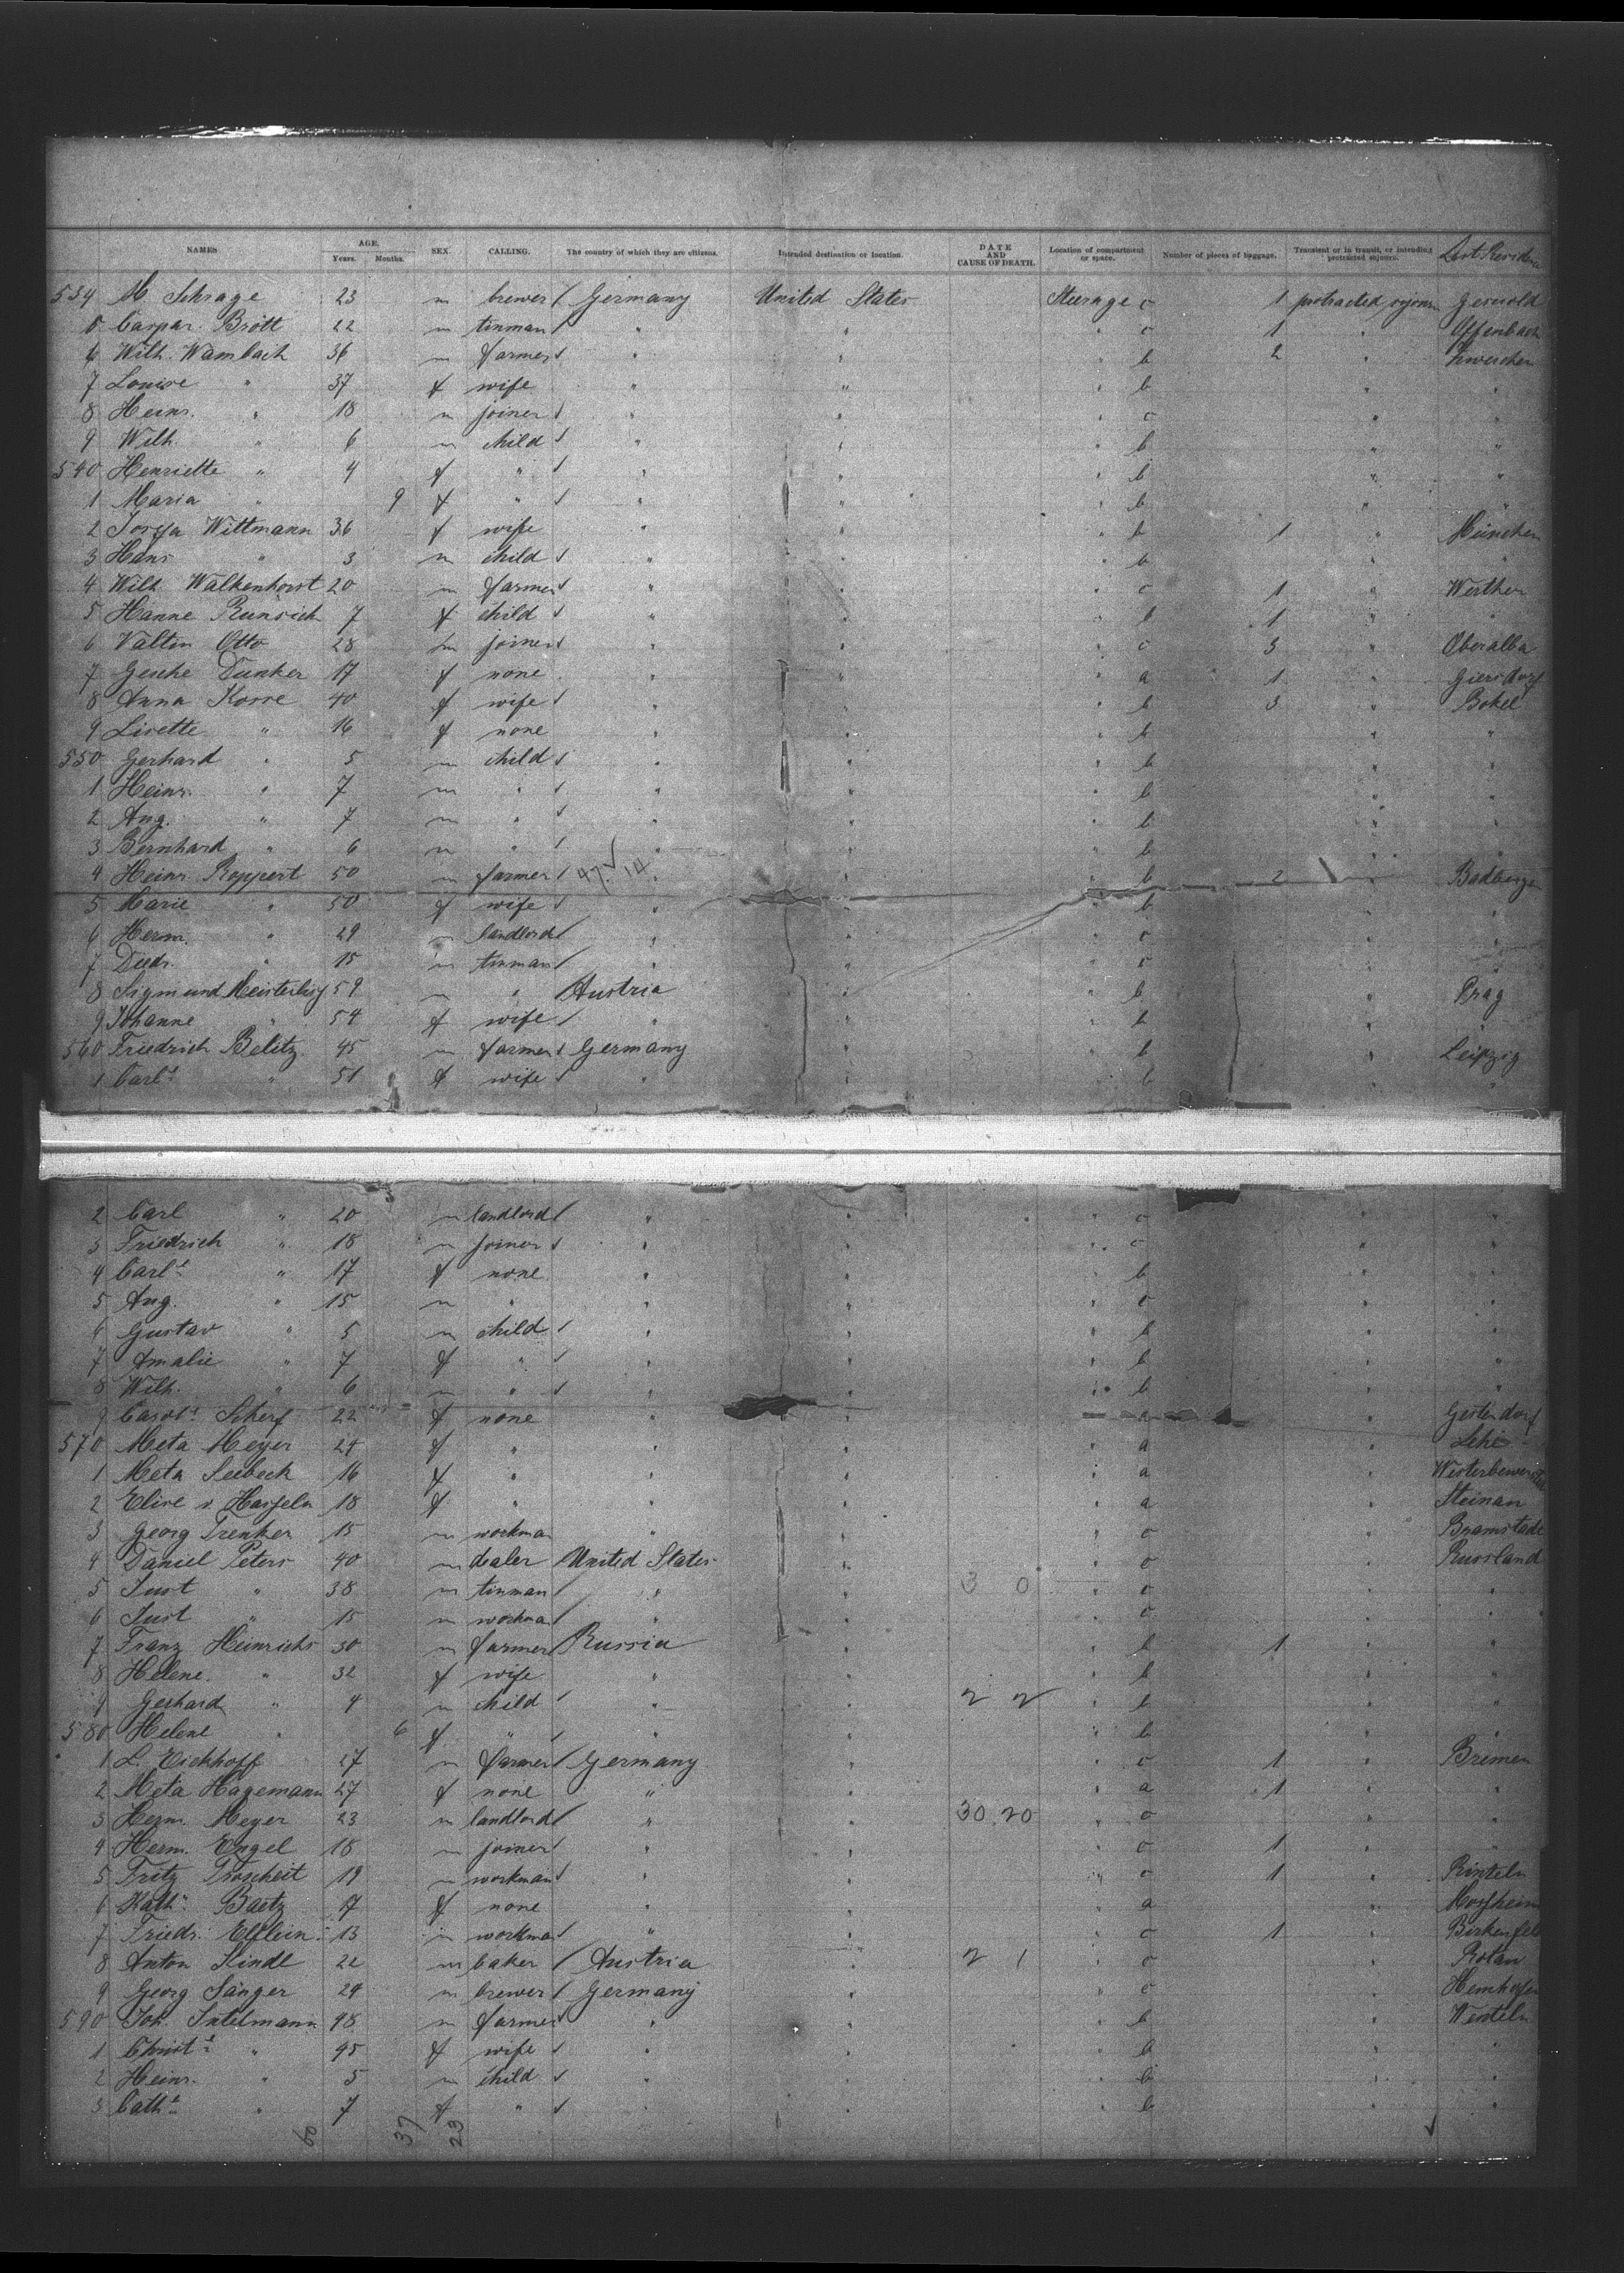 NAMES AGE. Years. Months. SEX. CALLING. The country of which they are citizens. Intended destination or location. DATE AND CAUSE OF DEATH. Location of compartment or space. Number of pieces of baggage. Transient or in transit, or intending protracted sojourn. Last Residence
534 M Schrage 23 m brewer Germany United States Steerage c 1 protracted sojourn
5 Caspar Brött 22 m tinman " " " c 1 " Offenbach
6 Wilh. Wambach 36 m farmer " " " b 2 "
7 Louise " 37 f wife " " " b " "
8 Heinr. " 18 m joiner " " " c " "
9 Wilh. " 6 m child " " " b " "
540 Henriette " 4 f " " " " b " "
1 Maria " 9 f " " " " b " "
2 Wittmann 36 f wife " " " b 1 " München
3 Hans " 3 m child " " " b " "
4 Wilh. Walkenhorst 20 m farmer " " " c 1 " Werther
5 Hanne 7 f child " " " b 1 " "
6 Valtin Otto 28 m joiner " " " c 3 " Oberalba
7 Gesche Dunker 17 f none " " " a 1 " Giersdorf
8 Anna Kosse 40 f wife " " " b 3 " Bokel
9 Lisette " 16 f none " " " b " "
550 Gerhard " 5 m child " " " b " "
1 Heinr. " 7 m " " " " b " "
2 Aug. " 7 m " " " " b " "
3 Bernhard " 6 m " " " " b " "
4 Heinr. Roppert 50 m farmer 47 14 " " " b 2 " Badbergen
5 Marie " 50 f wife " " " b " "
6 Herm. " 29 m landlord " " " c " "
7 Diedr. " 15 m tinman " " " c " "
8 Sigmund 59 m " Austria " " b " Prag
9 Johanne " 54 f wife " " " b " "
560 Friedrich Belitz 45 m farmer Germany " " b " Leipzig
1 Carl. " 51 f wife " " " b " "
2 Carl " 20 m landlord " " " c " "
3 Friedrich " 18 m joiner " " " c " "
4 Carl. " 17 f none " " " b " "
5 Aug. " 15 m " " " " c " "
6 Gustav " 5 m child " " " b " "
7 Amalie " 7 f " " " " b " "
8 Wilh. " 6 m " " " " b " "
9 Carol. Scherf 22 f none " " " a " Gestendorf
570 Meta Meyer 24 f " " " " a " Lehe
1 Meta Seebeck 16 f " " " " a "
2 Elise v. Hasseln 18 f " " " " a " Steinau
3 Georg Trenker 15 m workman " " " c " Bramstadt
4 Daniel Peters 40 m dealer United States " " c " Russland
5 Just " 38 m tinman " " 3 0 " c " "
6 Just " 15 m workman " " " c " "
7 Franz Heinrichs 30 m farmer Russia " " b 1 " "
8 Helene " 32 f wife " " " b " "
9 Gerhard " 4 m child " " 2 2 " b " "
580 Helene " 6 f " " " " b " "
1 L. Eickhoff 27 m farmer Germany " " c 1 " Bremen
2 Meta Hagemann 27 f none " " " a 1 " "
3 Herm. Meyer 23 m landlord " " 30 20 " c " "
4 Herm. Engel 18 m joiner " " " c 1 " "
5 Fritz Troscheit 19 m workman " " " c 1 " Rinteln
6 Kath. Baetz 17 f none " " " a " Mosheim
7 Friedr. Elflein 13 m workman " " " c 1 " Birkenfeld
8 Anton Kindl 22 m baker Austria " 2 1 " c "
9 Georg Sänger 24 m brewer Germany " " c " Hemhofen
590 Joh. Intelmann 48 m farmer " " " b "
1 Christ. " 45 f wife " " " b " "
2 Heinr. " 5 m child " " " b " "
3 Cath. " 7 f " " " " b " "
60 37 23